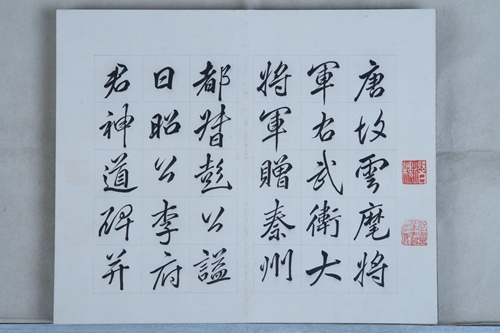 唐故雲麾將
軍右武衛大
將軍贈秦州
都督彭公謚
曰昭公李府
君神道碑并